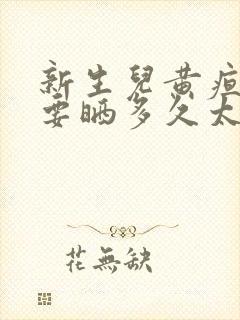 新生兒黄疸
要晒多久太
花無缺